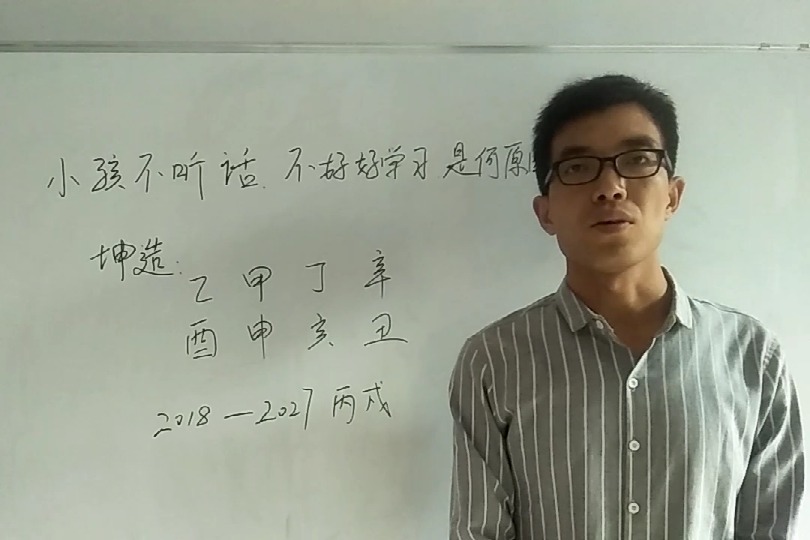 小孩不听话.不好好学习是何原
坤造:
乙 甲 丁 辛
酉 申 亥 丑
2018—2027 丙戌